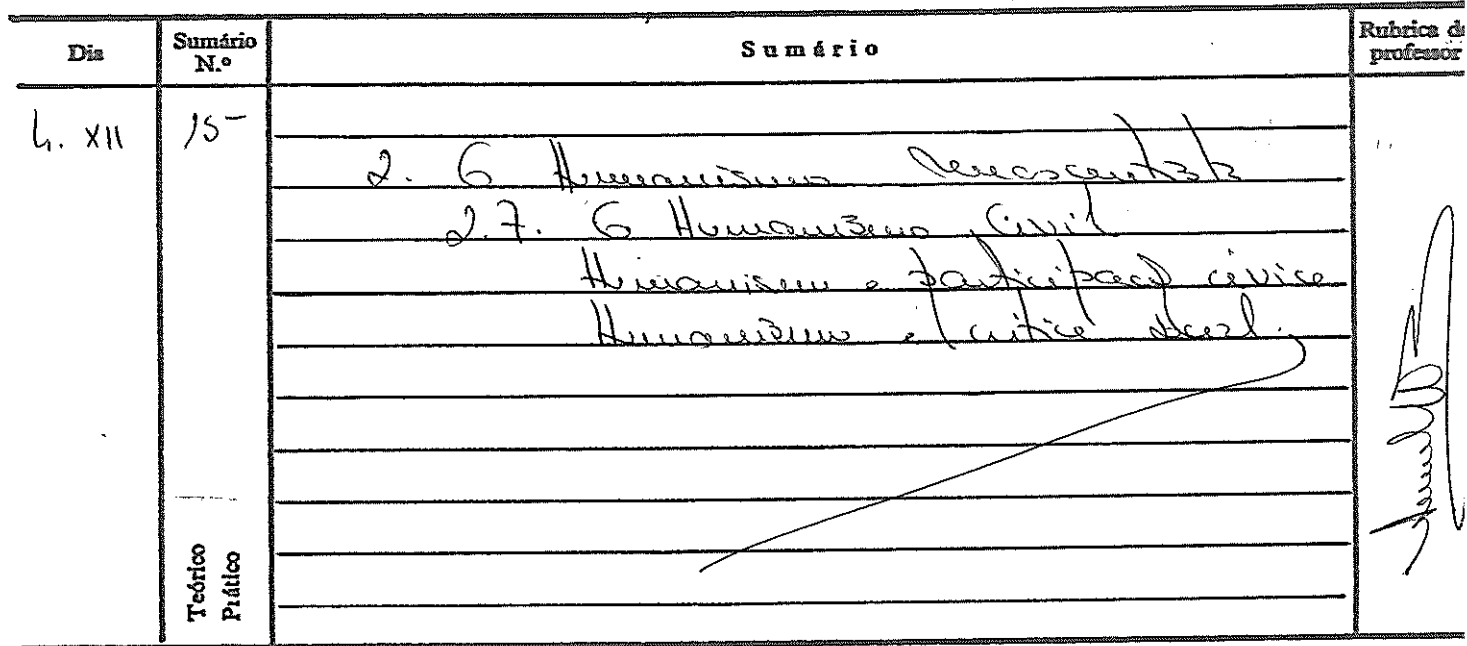 Dia
Sumário N.º
Sumário
Rubrica do professor
4. XII
15
2. O Humanismo Renascentista
2.7. O Humanismo Civil
Humanismo e participação cívica
Humanismo e crítica social.
Teórico
Prático